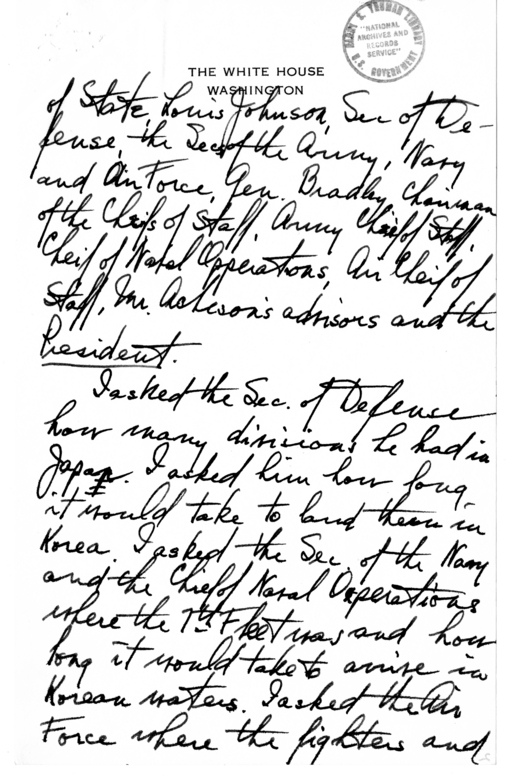 HARRY S. TRUMAN LIBRARY
"NATIONAL
ARCHIVES AND
RECORDS
SERVICE"
U.S. GOVERNMENT
THE WHITE HOUSE
WASHINGTON
of State, Louis Johnson, Sec of De-
fense, the Sec of the Army, Navy
and Air Force, Gen. Bradley, Chairman
of the Cheifs of Staff, Army Cheif of Staff,
Cheif of Naval Opperations, Air Cheif of
Staff, Mr. Acheson's advisors and the
President.
I asked the Sec. of Defense
how many divisions he had in
Japan. I asked him how long
it would take to land them in
Korea. I asked the Sec. of the Navy
and the Chief of Naval Operations
where the 7th Fleet was and how
long it would take to arrive in
Korean waters. I asked the Air
Force where the fighters and